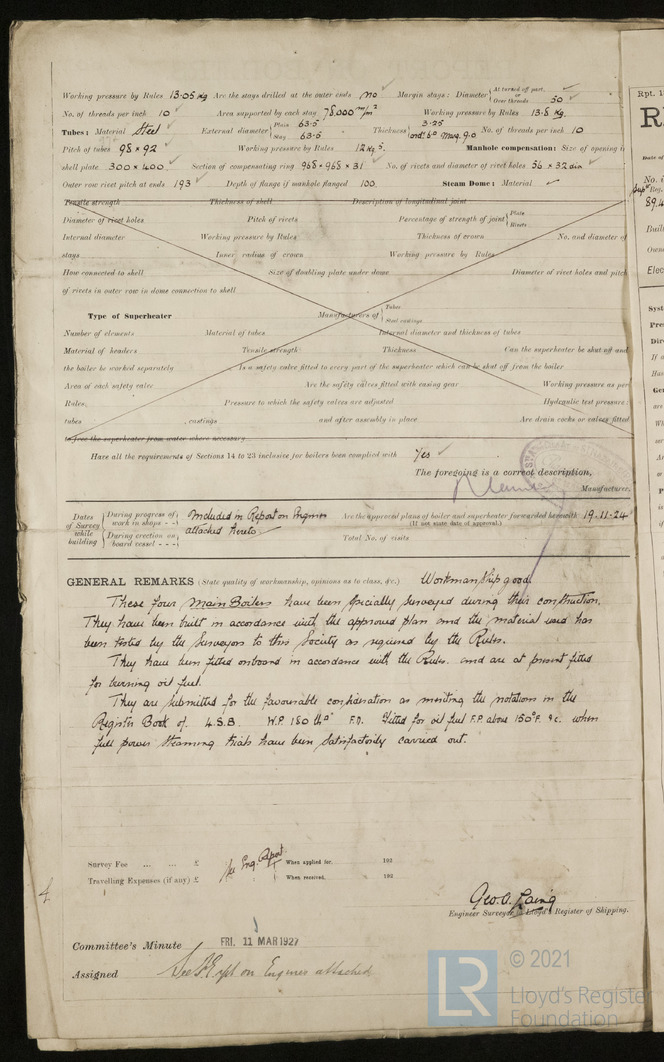 Working pressure by Rules 13.05 kg Are the stays drilled at the outer ends no Margin stays: Diameter { At turned off part, or Over threads 50
No. of threads per inch 10 Area supported by each stay 78,000 m/m² Working pressure by Rules 13.8 kg.
Tubes: Material Steel External diameter { Plain 63.5 Stay 63.5 Thickness { 3.25 No. of threads per inch 10
Pitch of tubes 98 × 92 Working pressure by Rules 12 kg Manhole compensation: Size of opening i
shell plate 300 × 400 Section of compensating ring 968 × 968 × 31 No. of rivets and diameter of rivet holes 56 × 32 dia
Outer row rivet pitch at ends 193 Depth of flange if manhole flanged 100 Steam Dome: Material
Tensile strength Thickness of shell Description of longitudinal joint
Diameter of rivet holes Pitch of rivets Percentage of strength of joint { Plate Rivets
Internal diameter Working pressure by Rules Thickness of crown No. and diameter of
stays Inner radius of crown Working pressure by Rules
How connected to shell Size of doubling plate under dome Diameter of rivet holes and pitch
of rivets in outer row in dome connection to shell
Type of Superheater Manufacturers of { Tubes Steel castings
Number of elements Material of tubes Internal diameter and thickness of tubes
Material of headers Tensile strength Thickness Can the superheater be shut off and
the boiler be worked separately Is a safety valve fitted to every part of the superheater which can be shut off from the boiler
Area of each safety valve Are the safety valves fitted with easing gear Working pressure as per
Rules, Pressure to which the safety valves are adjusted Hydraulic test pressure:
tubes , castings and after assembly in place Are drain cocks or valves fitted
to free the superheater from water where necessary
Have all the requirements of Sections 14 to 23 inclusive for boilers been complied with Yes
The foregoing is a correct description,
Manufacturer.
Dates of Survey while building { During progress of work in shops - - } Included in Report on Engines Are the approved plans of boiler and superheater forwarded herewith 19-11-24
(If not state date of approval.)
{ During erection on board vessel - - - } attached hereto Total No. of visits
GENERAL REMARKS (State quality of workmanship, opinions as to class, &c.) Workmanship good.
These four Main Boilers have been specially surveyed during their construction.
They have been built in accordance with the approved plan and the material used has
been tested by the Surveyors to this Society as required by the Rules.
They have been fitted onboard in accordance with the Rules. and are at present fitted
for burning oil fuel.
They are submitted for the favourable consideration as meriting the notations in the
Register Book of. 4. S.B. W.P. 180 lbs F.D. Fitted for oil fuel F.P. above 150°F. &c. when
full power steaming trials have been satisfactorily carried out.
Survey Fee ... ... £ See Eng. Report When applied for, 192
Travelling Expenses (if any) £ When received, 192
4
Geo. A. Laing
Engineer Surveyor to Lloyd's Register of Shipping.
Committee's Minute FRI. 11 MAR 1927
Assigned See Rpt on Engines attached
LR
© 2021
Lloyd's Register
Foundation
Rpt. 1
Date of
No. i
Reg.
89.4
Buil
Own
Elec
Syst
Pre
Dir
If a
Ha
Ge
are